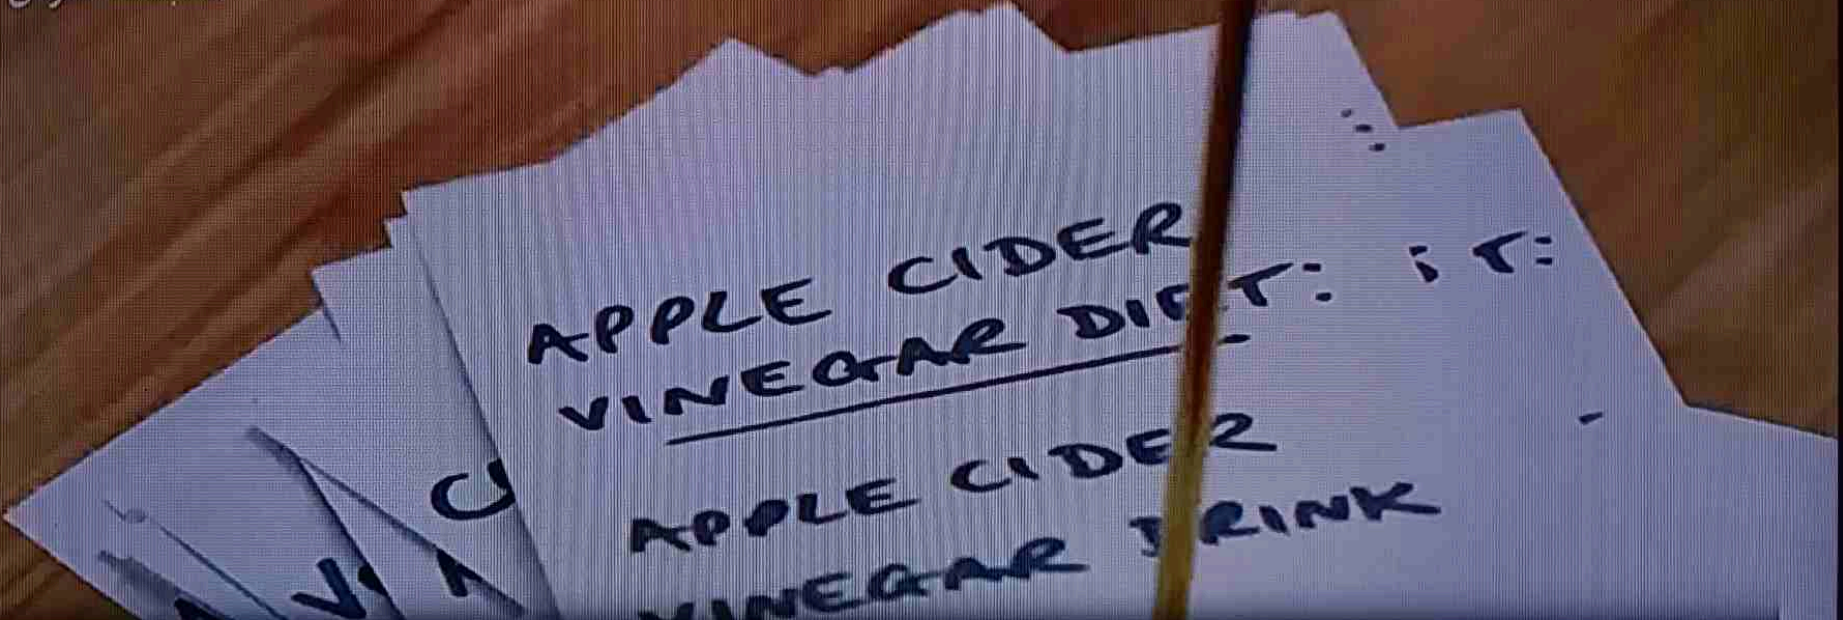 APPLE CIDER
VINEGAR DIET:
APPLE CIDER
VINEGAR DRINK